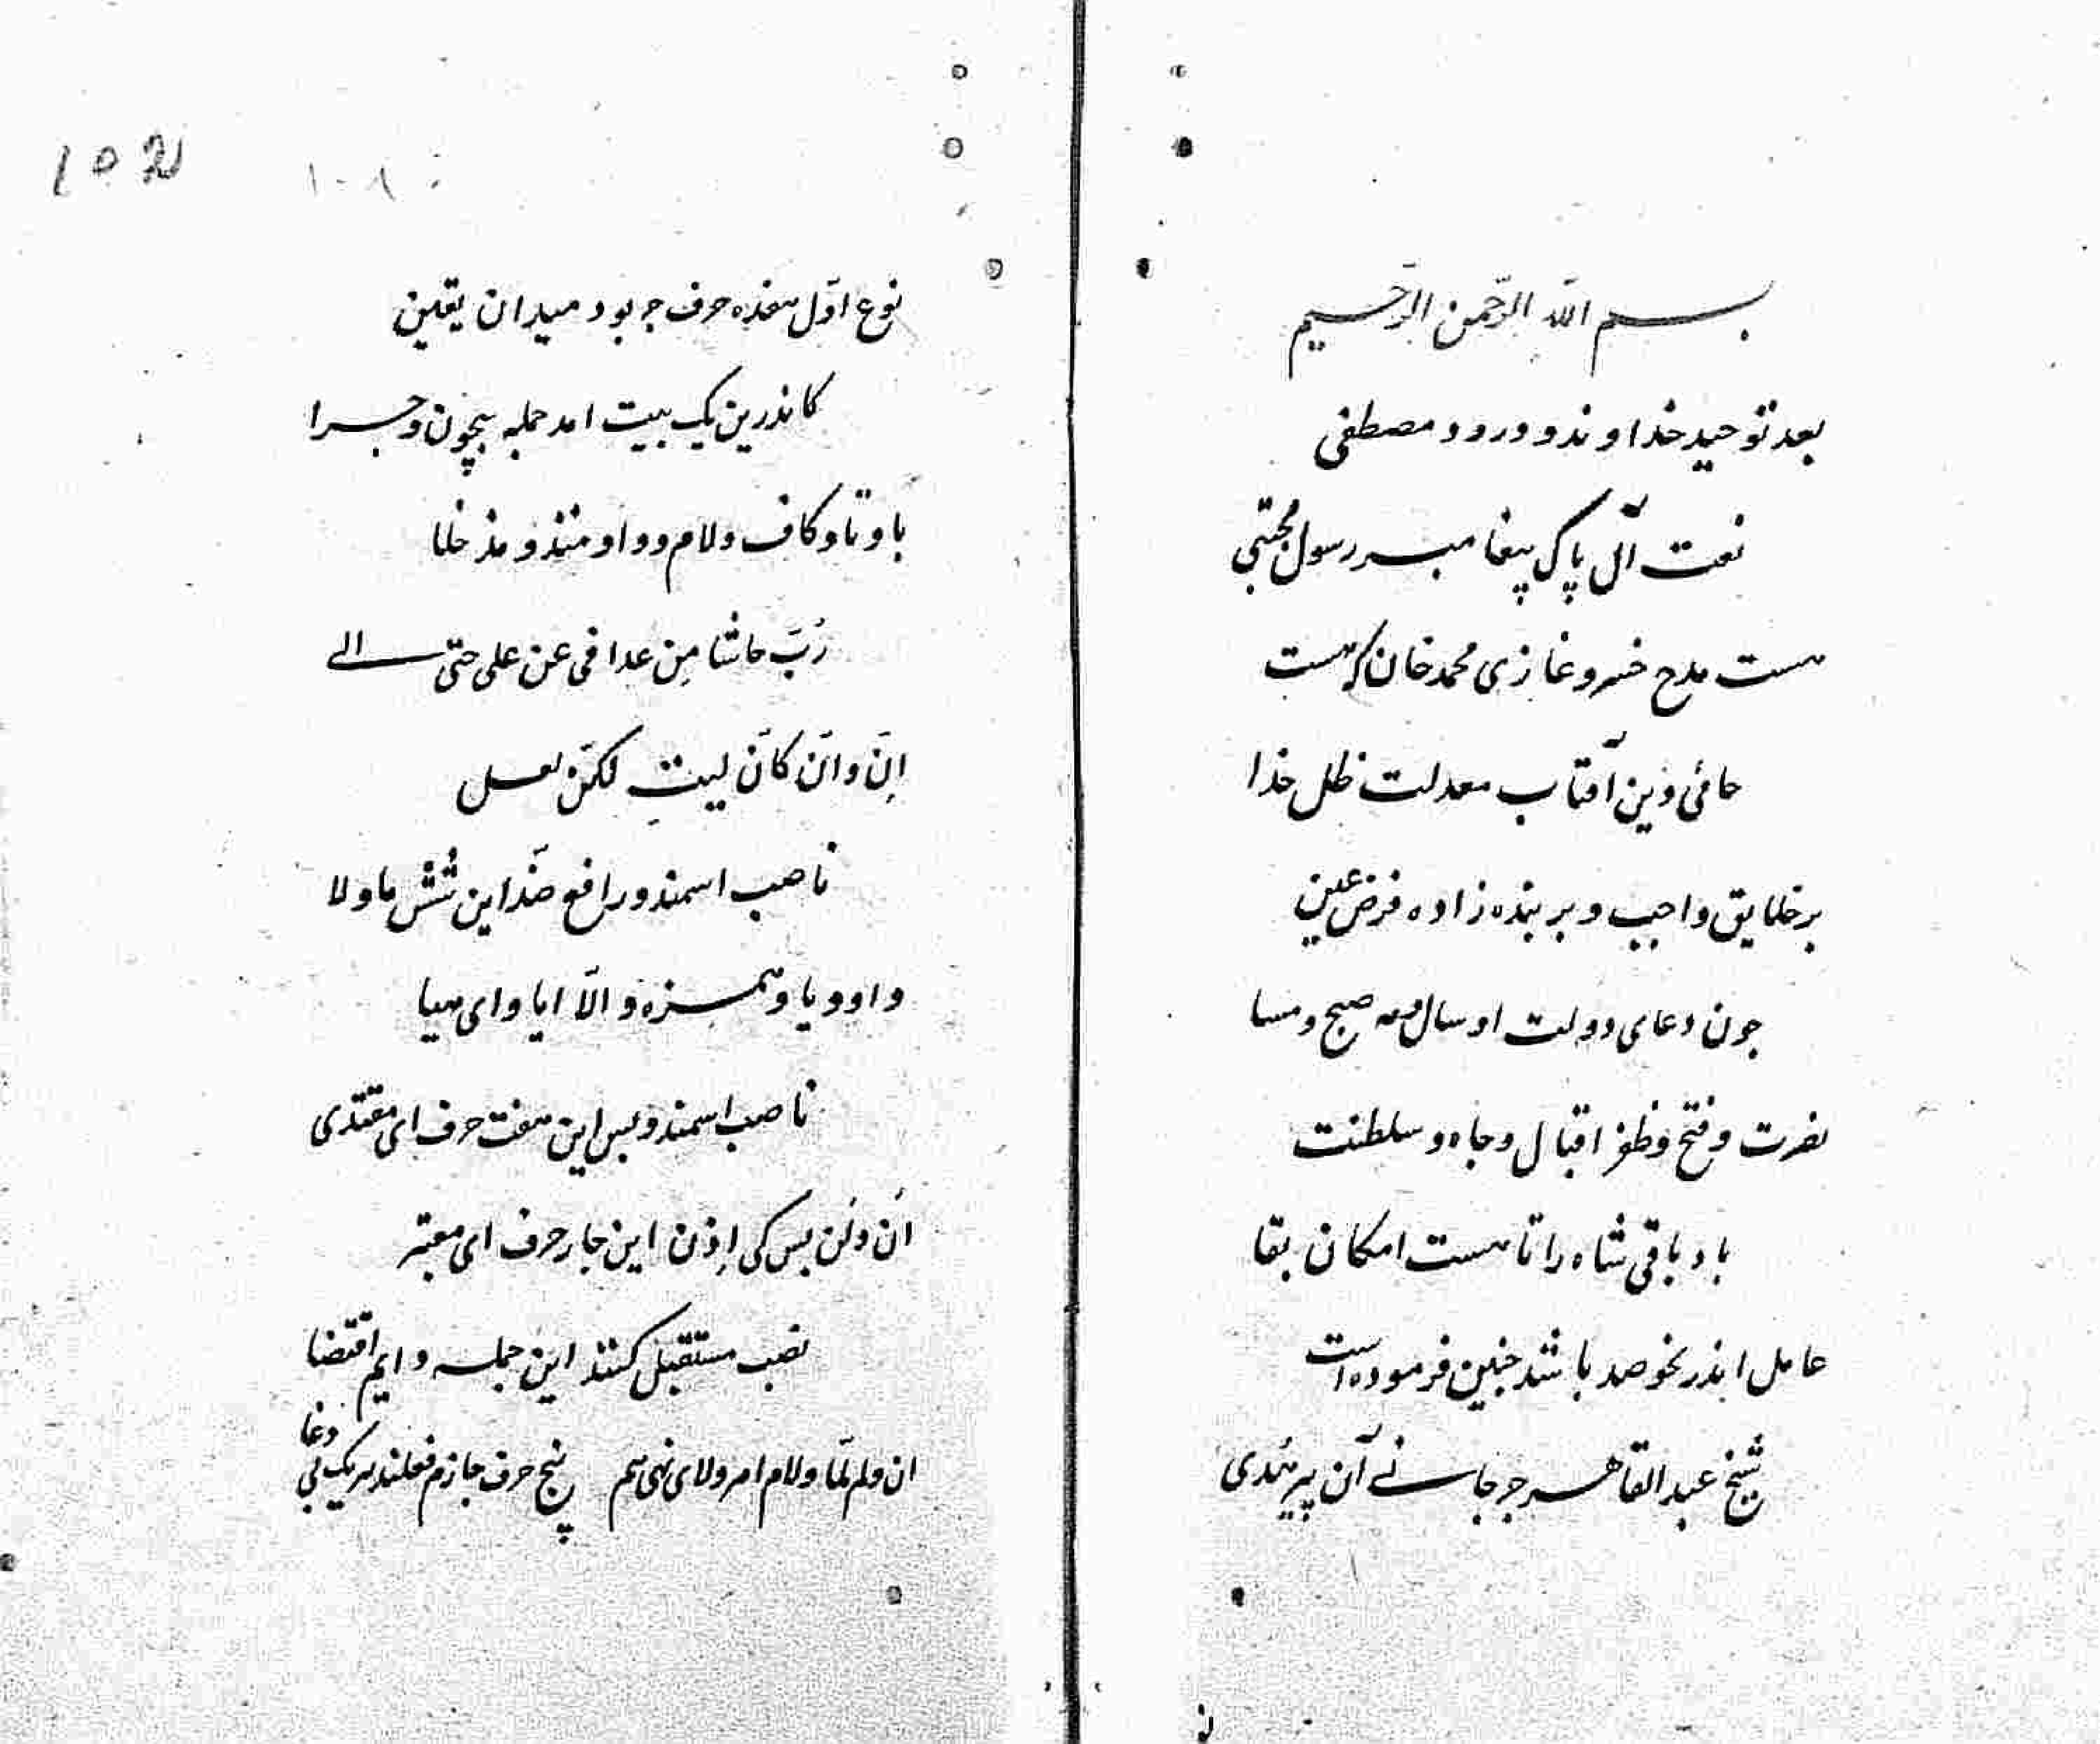 بسم الله الرّحمن الرّحیم
بعد توحید خداوند و درود مصطفی
نعت آل پاک پیغامبر رسول مجتبی
هست مدح خسرو غازی محمد خان که هست
حامی دین آفتاب معدلت ظل خدا
بر خلایق واجب و بر بنده زاده فرض عین
جون دعای دولت او سال و مه صبح و مسا
نصرت و فتح و ظفر اقبال و جاه و سلطنت
باد باقی شاه را تا هست امکان بقا
عامل اندر نحو صد باشد جنین فرموده است
شیخ عبد القاهر جرجانے آن پیر هُدی
نوع اوّل هفده حرف جر بود میدان یقین
کاندرین یک بیت امد جمله بیچون و جرا
با و تا و کاف و لام و واو منذ و مذ خلا
رُبّ حاشا مِن عدا فی عن علی حتّی الے
اِنّ و اَنّ کاَنّ لیت لکنّ لعل
ناصب اسمند و رافع ضدّ این شش ما و لا
واو و یا و همزه و الّا ایا و ای هیا
ناصب اسمند و بس این هفت حرف ای مقتدی
اَن و لَن بس کی اِذن این جار حرف ای معتبر
نصب مستقبل کنند این جمله دایم اقتضا
ان و لم لمّا و لام امر و لای نهی هم پنج حرف جازم فعلند هر یک بی دغا